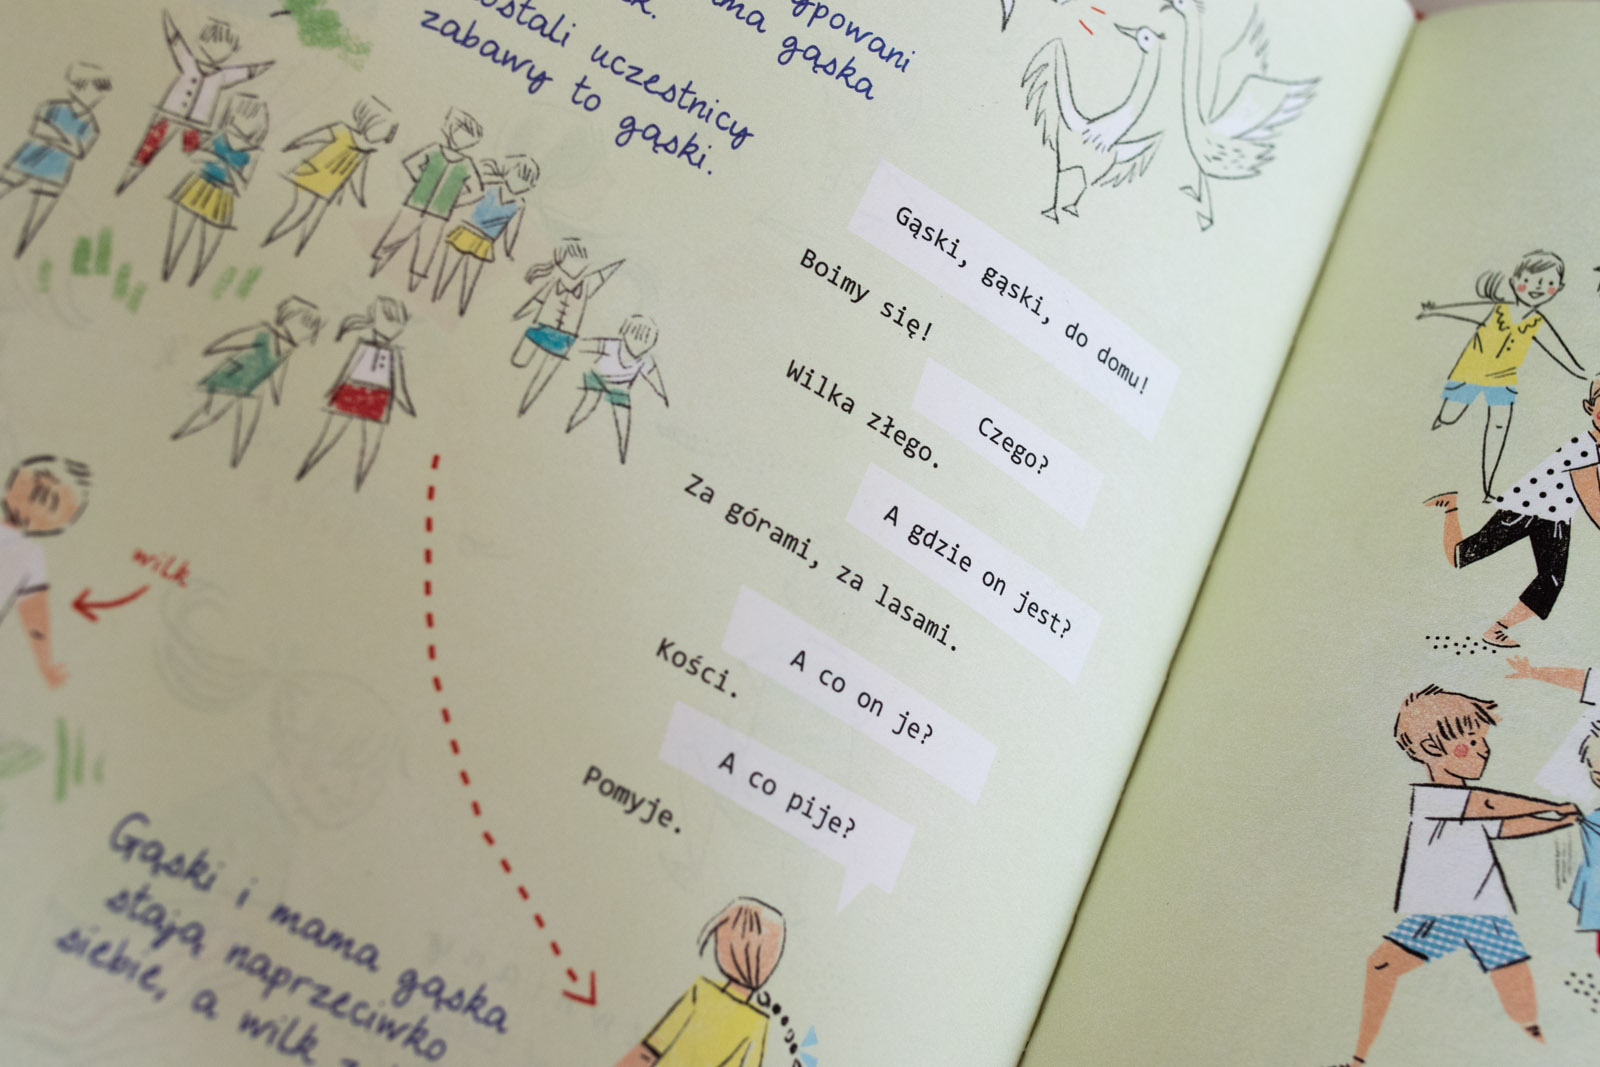 ypowani
ma gąska
zostali uczestnicy
zabawy to gąski.
Gąski, gąski, do domu!
Boimy się!
Czego?
Wilka złego.
A gdzie on jest?
Za górami, za lasami.
A co on je?
Kości.
A co pije?
Pomyje.
wilk
Gąski i mama gąska
stają naprzeciwko
siebie, a wilk